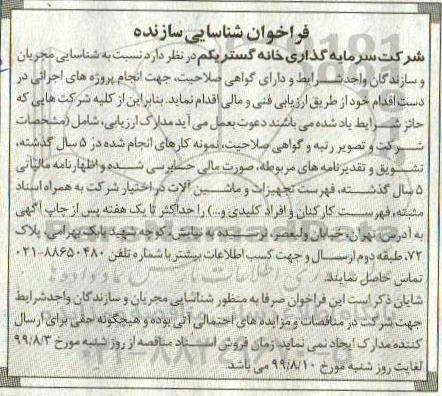 فراخوان شناسایی سازنده
شرکت سرمایه گذاری خانه گستر یکم در نظر دارد نسبت به شناسایی مجریان
و سازندگان واجد شرایط و دارای گواهی صلاحیت، جهت انجام پروژه های اجرائی در
دست اقدام خود از طریق ارزیابی فنی و مالی اقدام نماید. بنابراین از کلیه شرکت هایی که
حائز شرایط یاد شده می باشند دعوت بعمل می آید مدارک ارزیابی، شامل (مشخصات
شرکت و تصویر رتبه و گواهی صلاحیت، نمونه کارهای انجام شده در ۵ سال گذشته،
تشویق و تقدیرنامه های مربوطه، صورت مالی حسابرسی شده و اظهارنامه مالیاتی
۵ سال گذشته، فهرست تجهیزات و ماشین آلات در اختیار شرکت به همراه اسناد
مثبته، فهرست کارکنان و افراد کلیدی و...) را حداکثر تا یک هفته پس از چاپ آگهی
به آدرس: تهران، خیابان ولیعصر، نرسیده به نیایش، کوچه شهید بابک بهرامی، پلاک
۷۲، طبقه دوم ارسال و جهت کسب اطلاعات بیشتر با شماره تلفن ۸۸۶۵۰۴۸۰-۰۲۱
تماس حاصل نمایند.
شایان ذکر است این فراخوان صرفا به منظور شناسایی مجریان و سازندگان واجد شرایط
جهت شرکت در مناقصات و مزایده های احتمالی آتی بوده و هیچگونه حقی برای ارسال
کننده مدارک ایجاد نمی نماید. زمان فروش اسناد مناقصه از روز شنبه مورخ ۹۹/۸/۳
لغایت روز شنبه مورخ ۹۹/۸/۱۰ می باشد.